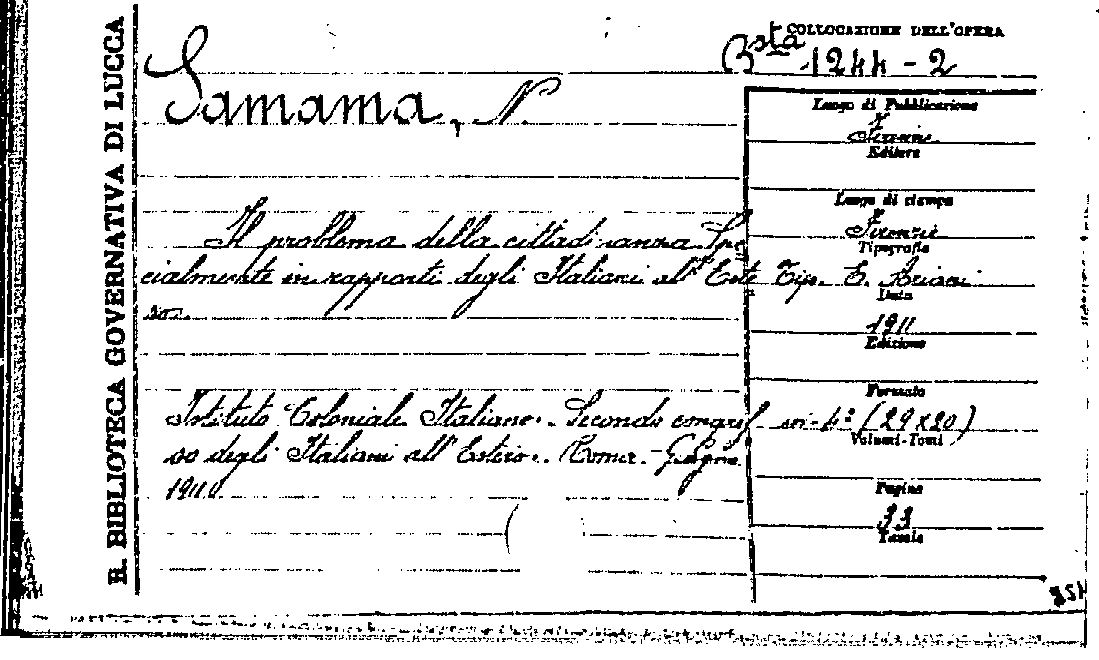 R. BIBLIOTECA GOVERNATIVA DI LUCCA
COLLOCAZIONE DELL'OPERA
Bsta 1244-2
Samama, N.
Luogo di Pubblicazione
Firenze
Editore
Luogo di stampa
Firenze
Tipografia
Tip. E. Ariani
Data
1911
Edizione
Formato
in-4º (29x20)
Volumi-Tomi
Pagine
33
Tavole
Il problema della cittadinanza Spe
cialmente in rapporti degli Italiani all'Este
ro.
Istituto Coloniale Italiano. Secondo congres
so degli Italiani all'Estero. Roma. Giugno
1911